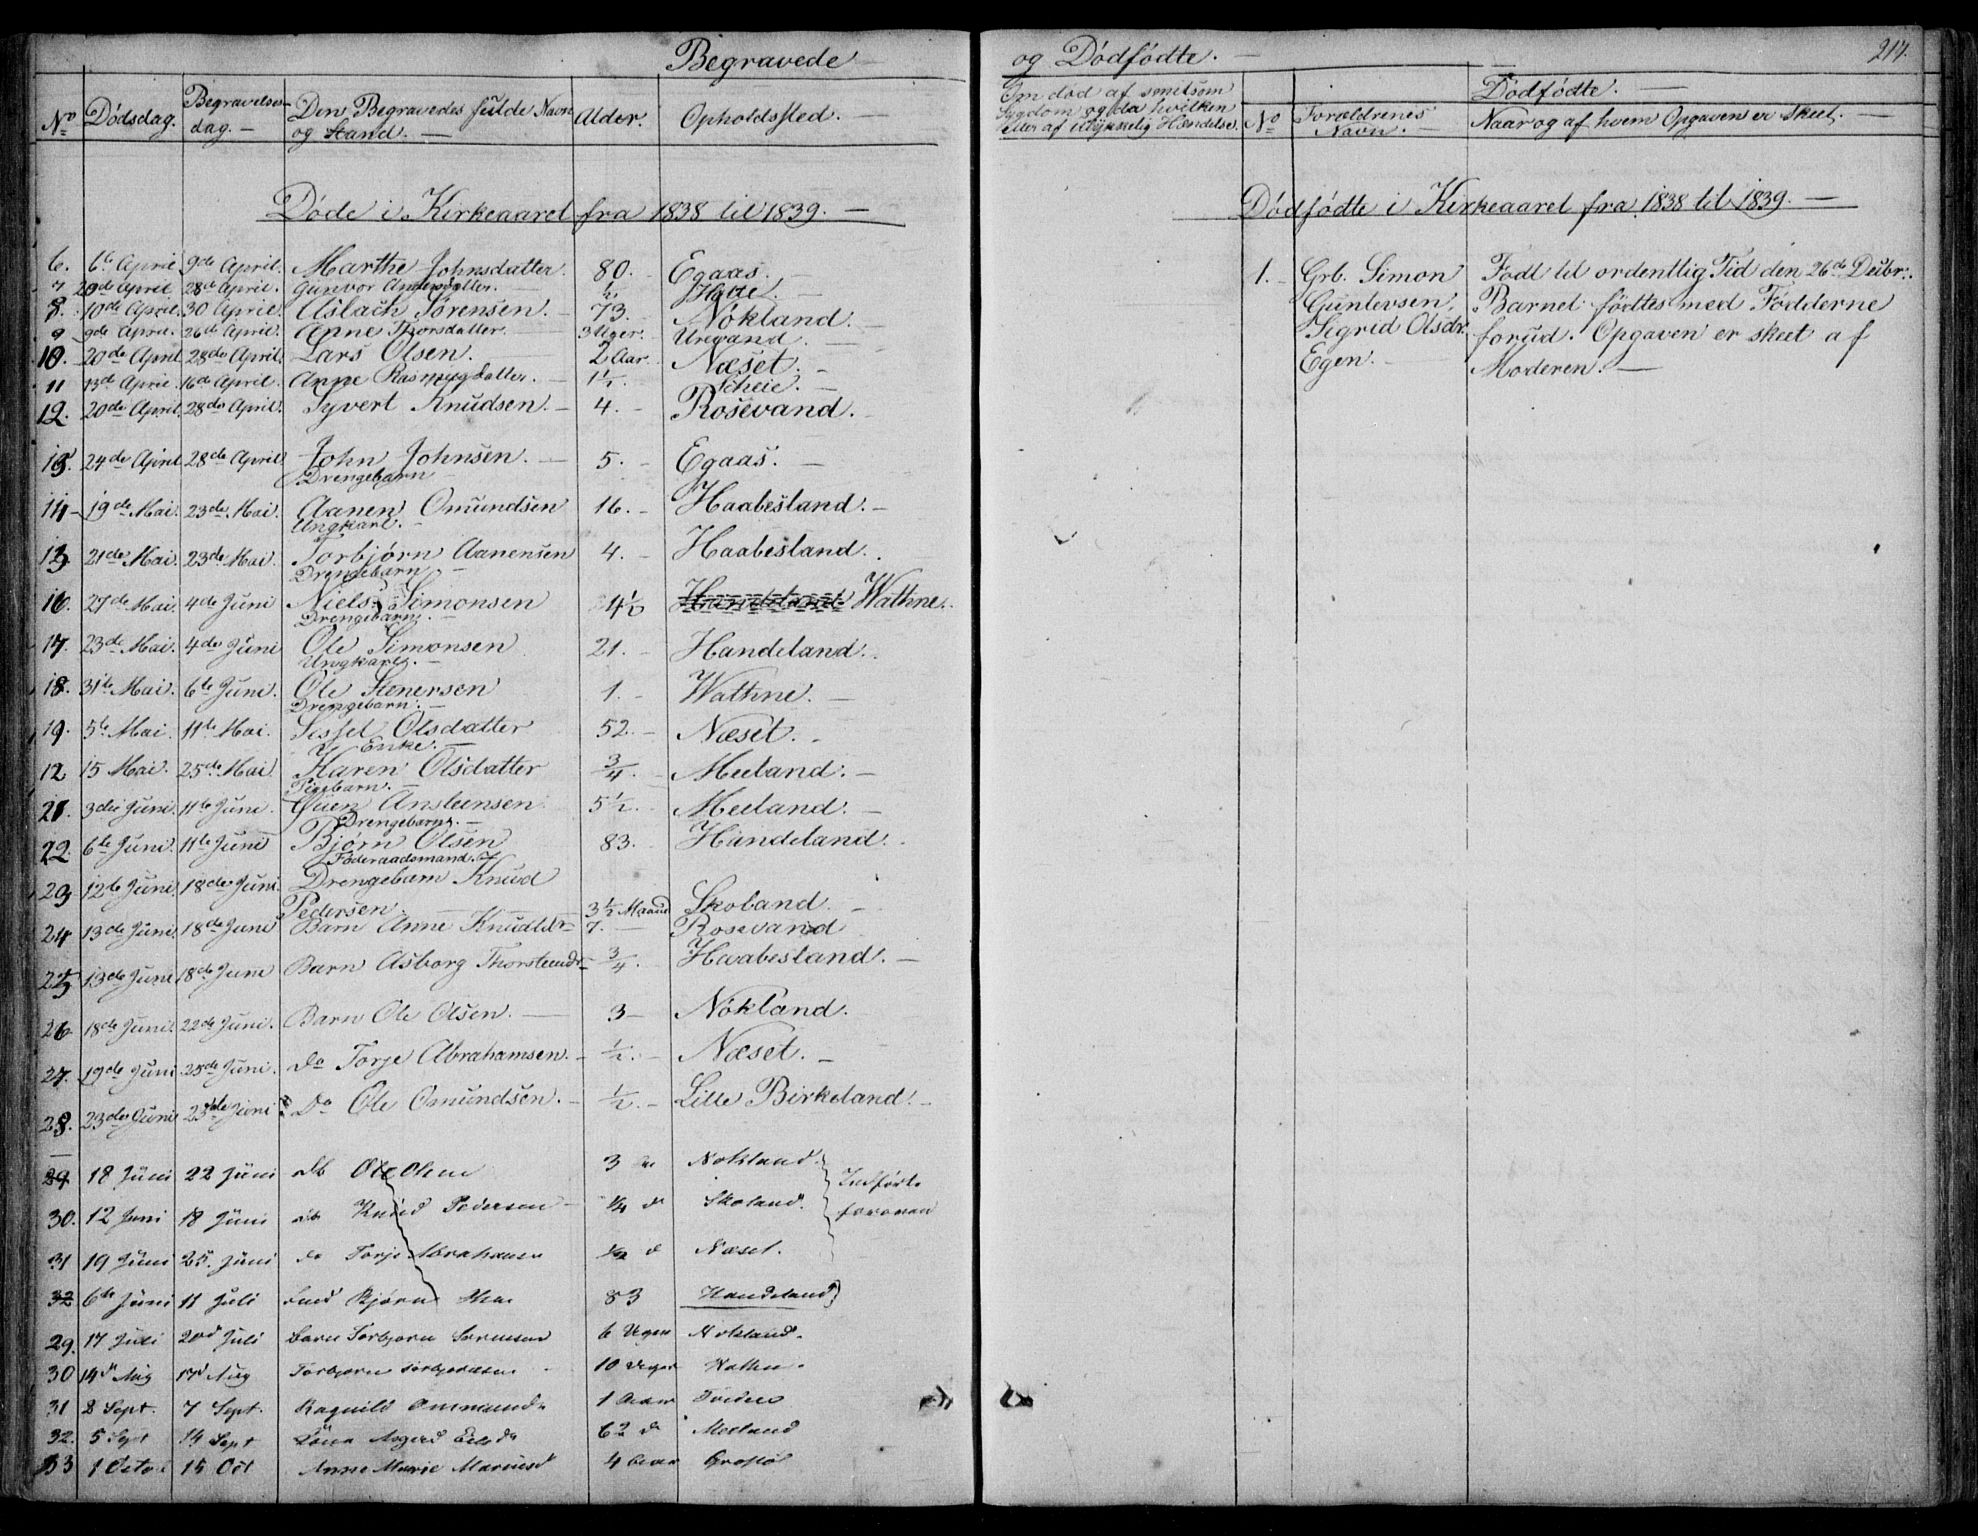 Begravede
og Dödfödte.
217.
No
Dödsdag.
Begravelses-
dag.
Den Begravedes fulde Navn
og Stand.
Alder.
Opholdssted.
Om död af smitsom
Sygdom og da hvilken
eller af ulykkelig Hændelse.
No
Forældrenes
Navn.
Dödfödte.
Naar og af hvem Opgaven er skeet.
Döde i Kirkeaaret fra 1838 til 1839.
6. 6te April 9de April. Marthe Johnsdatter. 80. Egaas.
7 20de April 28de April. Gunvor Andersdatter. ½
8. 10de April. 30 April. Aslach Sørensen. 73. Nökland.
9 9de April. 26de April. Anne Thorsdatter 3 Uger. Urevand.
10. 20de April 28de April. Lars Olsen. 2 Aar. Næset.
11 13de April 16de April. Anne Rasmusdatter. 1½. Scheie.
12. 20de April. 28de April. Syvert Knudsen. 4. Rosevand.
13. 24de April 28de April John Johnsen. 5. Egaas.
Drengebarn
14 19de Mai. 23de Mai. Aanen Omundsen 16. Haabesland.
Ungkarl.
15 21de Mai. 23de Mai. Torbjørn Aanensen 4. Haabesland.
Drengebarn
16. 27de Mai. 4de Juni Niels Simonsen 4½ Wathne.
Drengebarn.
17. 23de Mai. 4de Juni Ole Simonsen 21. Handeland.
Ungkarl.
18. 31te Mai. 6te Juni. Ole Stenersen 1. Wathne.
Drengebarn.
19. 5te Mai. 11te Mai. Sissel Olsdatter 52. Næset.
Enke.
12 15 Mai. 25de Mai Karen Olsdatter ¾. Meeland.
Pigebarn.
21. 3die Juni. 11te Juni. Øuen Anstensen 5½. Meeland.
Drengebarn.
22. 6te Juni. 11te Juni Bjørn Olsen 83. Handeland.
Föderaadsmand.
23 12te Juni. 18de Juni. Drengebarn Knud
Pedersen 3½ Maaned Skoland.
24 13de Juni. 18de Juni Barn Anne Knudsdr 7. Rosevand
25 13de Juni 18de Juni Barn Asborg Thorsteensdr ¾. Haabesland.
26 18de Juni. 22de Juni. Barn Ole Olsen. 3 Nökland.
27. 19de Juni 25de Juni. Do Torje Abrahamsen. ½. Næset.
28. 23de Juni 23de Juni Do Ole Omundsen. ½. Lille Birkeland.
29 18 Juni 22 Juni db Ole Olsen 3 Nokland
30. 12 Juni 18 Juni db Knud Pedersen ¼ d Skoland.
Indført
foroven
31 19 Juni 25. Juni do Torje Abrahams ½ d Næset.
32 6te Juni 11 Juli Bjørn 83 Handeland
29. 17 Juli 20d Juli Barn Torbjorn Sorensen 6 Uger Nokland.
30 14d Aug 17d Aug Torbjorn Torbjornsen 10 Uger
31 2 Sept. 7 Sept. Ragnild 1
32. 5 Sept 14 Sept 62 d Meeland
33 1 Octo 15 Oct Anne Marie 4
Dödfödte i Kirkeaaret fra 1838 til 1839.
1. Grb. Simon
Guntersen,
Sigrid Olsdr.
Egen.
Födt til ordentlig Tid den 26de Decbr.
Barnet födtes med Födderne
forud. Opgaven er skeet af
Moderen.